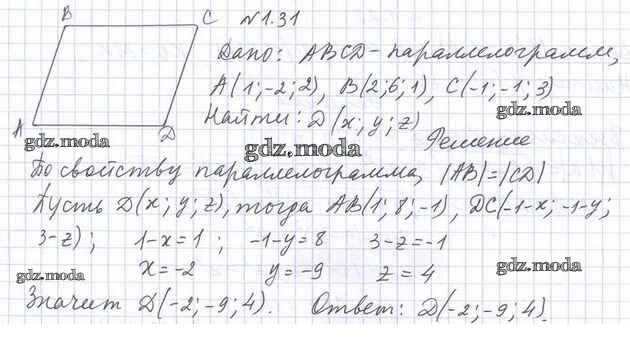 B C №1.31
Дано: ABCD - параллелограмм,
A(1;-2;2), B(2;6;1), C(-1;-1;3)
gdz.moda
Найти: D(x; y; z)
A D
gdz.moda gdz.moda Решение
По свойству параллелограмма, |AB|=|CD|
Пусть D(x; y; z), тогда AB(1; 8; -1), DC(-1-x; -1-y;
3-z); 1-x=1; -1-y=8 3-z=-1
gdz.moda x=-2 y=-9 z=4 gdz.moda
Значит D(-2; -9; 4). Ответ: D(-2; -9; 4).